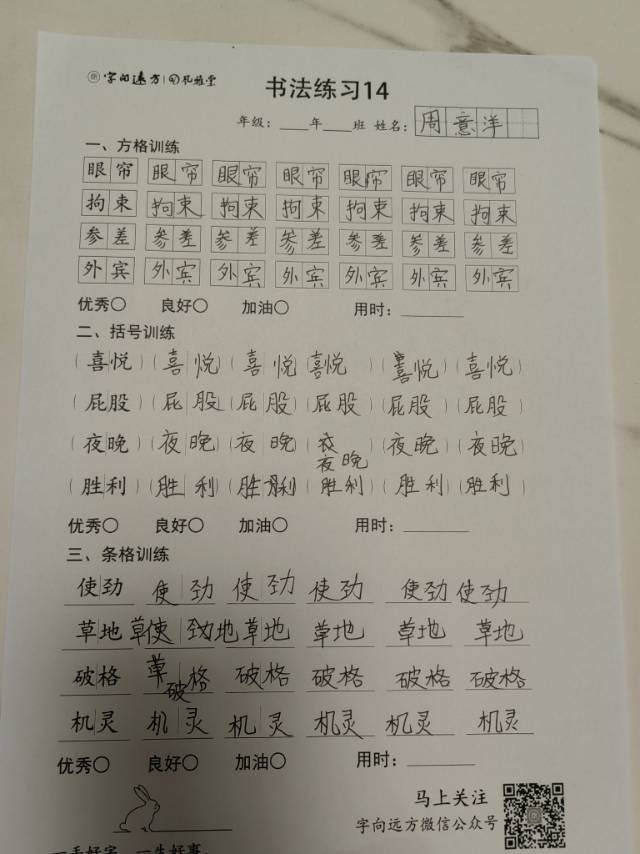 字向远方 | 孔雅堂
书法练习14
年级：____年____班 姓名：周意洋
一、方格训练
眼帘 眼帘 眼帘 眼帘 眼帘 眼帘 眼帘
拘束 拘束 拘束 拘束 拘束 拘束 拘束
参差 参差 参差 参差 参差 参差 参差
外宾 外宾 外宾 外宾 外宾 外宾 外宾
优秀○ 良好○ 加油○ 用时：________
二、括号训练
（喜悦）（喜悦）（喜悦）（喜悦）（喜悦）（喜悦）
（屁股）（屁股）（屁股）（屁股）（屁股）（屁股）
（夜晚）（夜晚）（夜晚）（夜晚）（夜晚）（夜晚）
（胜利）（胜利）（胜利）（胜利）（胜利）（胜利）
优秀○ 良好○ 加油○ 用时：________
三、条格训练
使劲 使劲 使劲 使劲 使劲 使劲
草地 草使 劲地 草地 草地 草地 草地
破格 草破格 破格 破格 破格 破格
机灵 机灵 机灵 机灵 机灵 机灵
优秀○ 良好○ 加油○ 用时：________
马上关注
字向远方微信公众号
一手好字，一生好事。